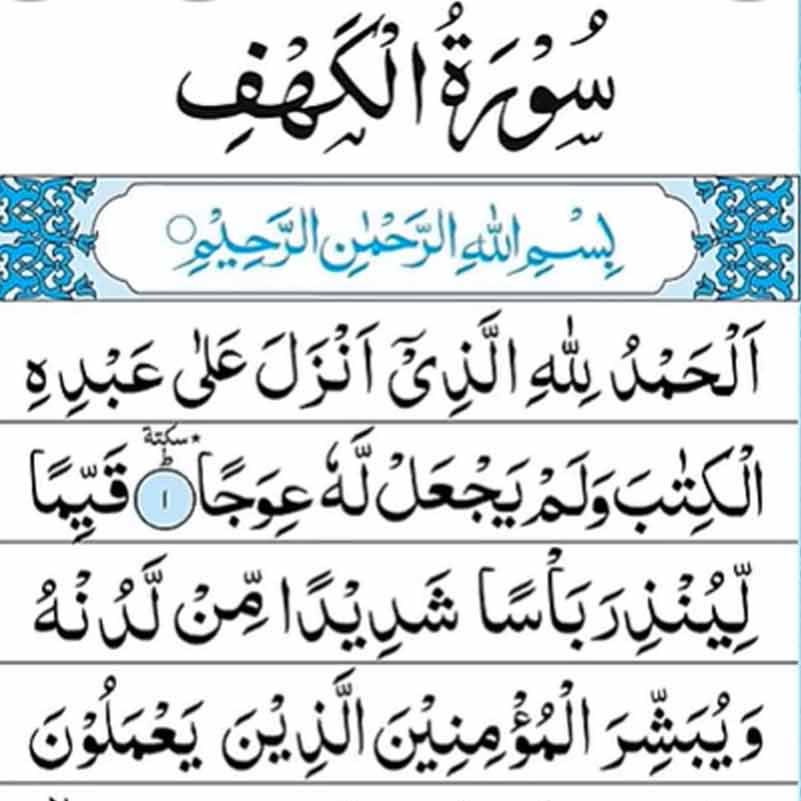 سُوْرَةُ الْكَهْفِ
بِسْمِ اللّٰهِ الرَّحْمٰنِ الرَّحِيْمِ
اَلْحَمْدُ لِلّٰهِ الَّذِيْۤ اَنْزَلَ عَلٰى عَبْدِهِ
الْكِتٰبَ وَلَمْ يَجْعَلْ لَّهٗ عِوَجًا ؕ سكتة ١ قَيِّمًا
لِّيُنْذِرَ بَاْسًا شَدِيْدًا مِّنْ لَّدُنْهُ
وَيُبَشِّرَ الْمُؤْمِنِيْنَ الَّذِيْنَ يَعْمَلُوْنَ